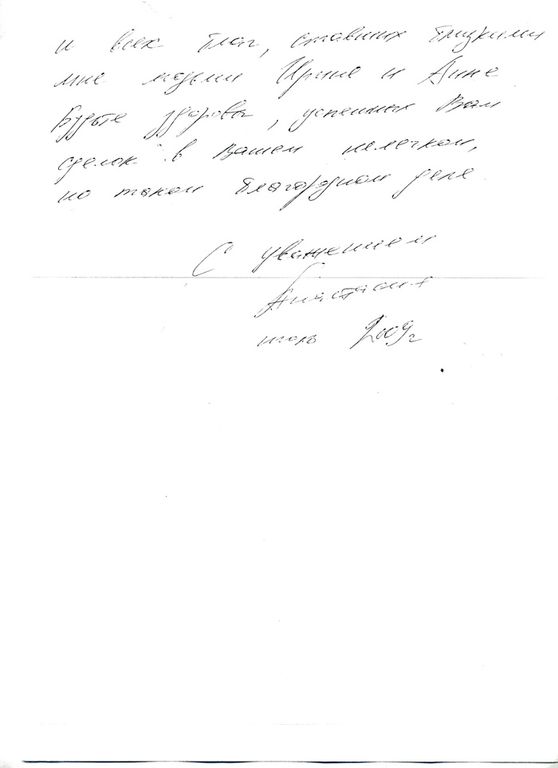 и всех благ, ставших близкими
мне людьми Ирине и Анне
Будьте здоровы, успешных Вам
сделок в вашем нелегком,
но таком благородном деле
С уважением
Анастасия
2009г